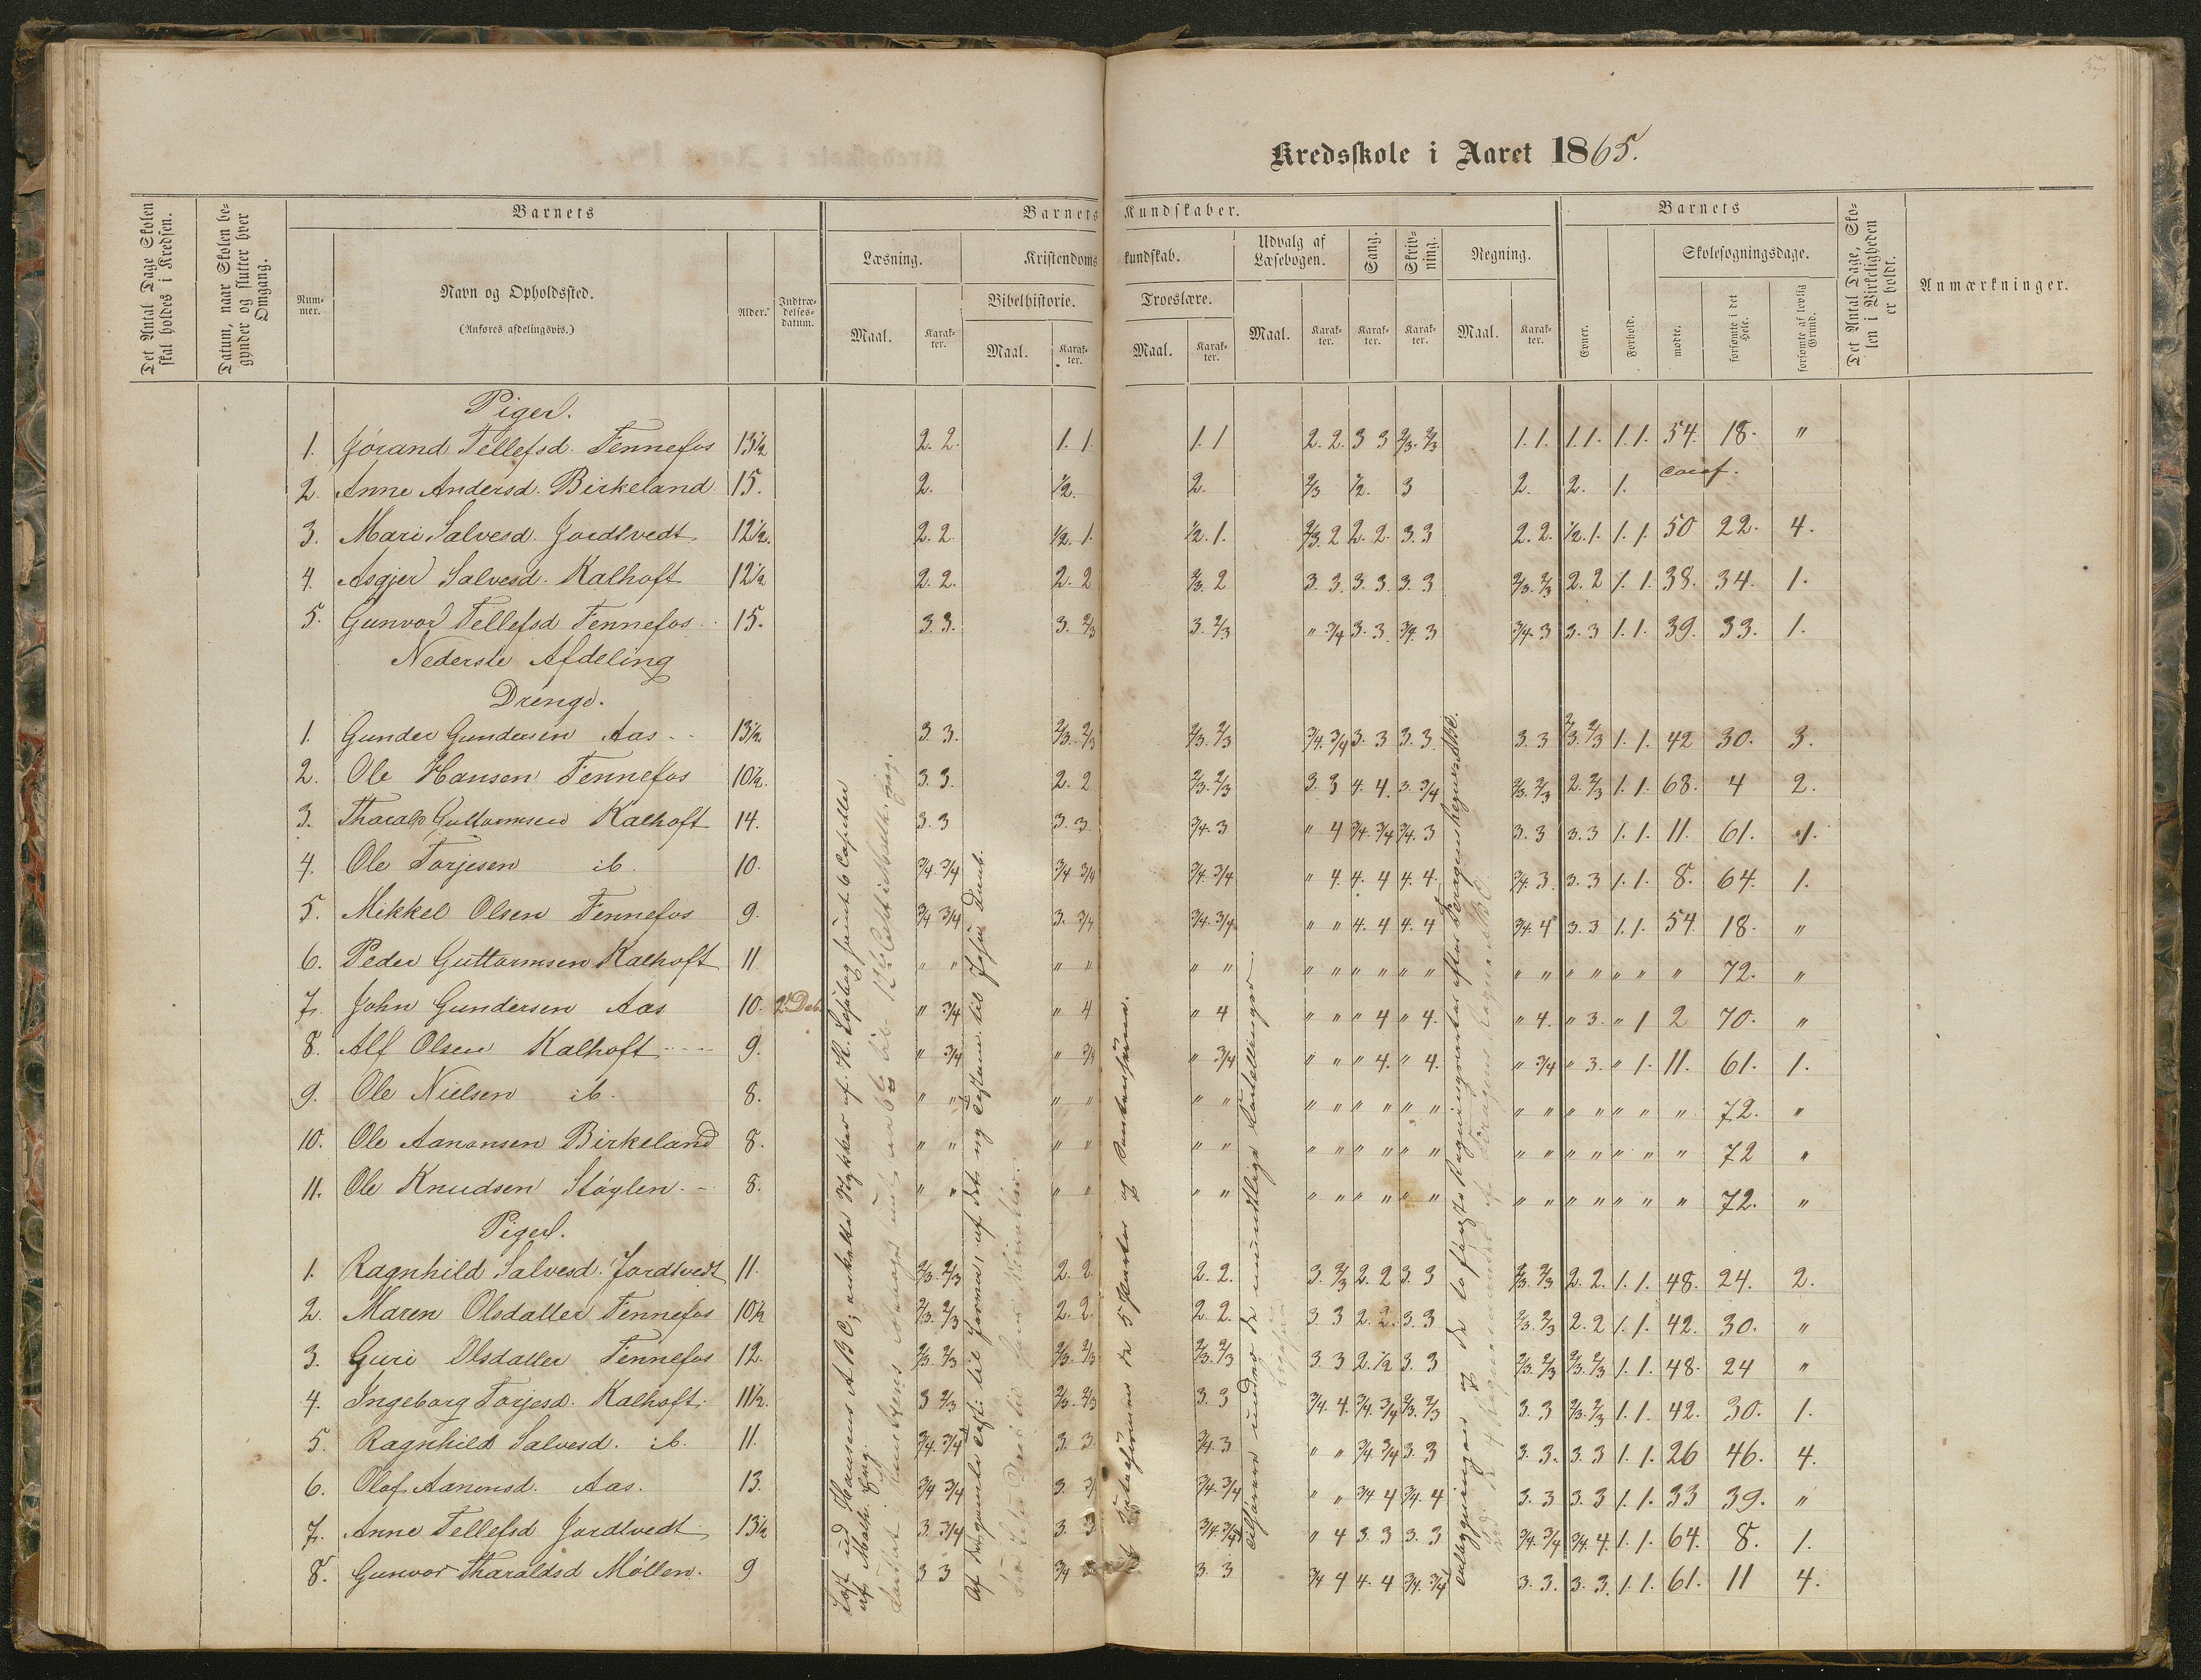 Kredsskole i Aaret 1865.
Det Antal Dage Skolen skal holdes i Kredsen.
Datum, naar Skolen begynder og slutter hver Omgang.
Barnets
Nummer.
Navn og Opholdssted.
(Anføres afdelingsvis.)
Alder.
Indtrædelsesdatum.
Barnets Kundskaber.
Læsning.
Maal.
Karakter.
Kristendomskundskab.
Bibelhistorie.
Maal.
Karakter.
Troeslære.
Maal.
Karakter.
Udvalg af Læsebogen.
Maal.
Karakter.
Sang.
Karakter.
Skrivning.
Karakter.
Regning.
Maal.
Karakter.
Barnets
Evner.
Forhold.
Skolesøgningsdage.
mødte.
forsømte i det Hele.
forsømte af lovlig Grund.
Det Antal Dage, Skolen i Virkeligheden er holdt.
Anmærkninger.
Piger.
1. Jørand Tellefsd. Fennefos 13½ 2. 2. 1. 1. 1. 1 2. 2. 3 3 2/3. 2/3 1. 1. 1. 1. 1. 1. 54. 18. "
2. Anne Andersd. Birkeland 15. 2. ½. 2. 2/3 ½. 3 2. 2. 1. conf.
3. Mari Salvesd. Jordtvedt. 12½. 2. 2. ½. 1. ½. 1. 2/3. 2 2. 2. 3. 3 2. 2. ½. 1. 1. 1. 50 22. 4.
4. Asgjer Salvesd. Kalhoft 12½ 2. 2. 2. 2 2/3. 2 3. 3. 3. 3. 3. 3 2/3. 2/3 2. 2 1. 1. 38. 34. 1.
5. Gunvor Tellefsd Fennefos 15. 3. 3. 3. 2/3 3. 2/3 " 3/4 3. 3 3/4. 3 3/4. 3 3. 3 1. 1. 39. 33. 1.
Nederste Afdeling
Drenge.
1. Gunder Gundersen Aas 13½ 3 3. 2/3. 2/3 2/3. 2/3 3/4. 3/4 3. 3 3. 3. 3. 3 2/3. 2/3 1. 1. 42 30. 3.
2. Ole Hansen Fennefos 10½. 3. 3. 2. 2 2/3. 2/3 3. 3 4. 4. 3. 3/4 2/3. 2/3 2. 2/3 1. 1. 68. 4 2.
3. Tharald Guttormsen Kalhoft 14. 3. 3 3. 3 3/4. 3 " 4 3/4. 3/4 3/4. 3 3. 3 3. 3 1. 1. 11. 61. 1.
4. Ole Torjesen ib. 10. 3/4. 3/4 3/4 3/4 3/4. 3/4 " 4. 4. 4 4. 4. 3/4. 3 3. 3 1. 1 8. 64. 1.
5. Mikkel Olsen Fennefos 9. 3/4 3/4 3. 3/4 3/4. 3/4 " " 4. 4 4. 4 3/4. 4 3. 3 1. 1. 54. 18. "
6. Peder Guttormsen Kalhoft 11 " " " " " " " " " " " " " " " " " " " 72. "
7. John Gundersen Aas 10. 2. Deb. " 3/4 " 4 " 4 " " " 4 " 4. " 4. " 3. " 1 2 70. "
8. Alf Olsen Kalhoft 9. " 3/4 " 3/4 " 3/4 " " " 4. " 4. " 3/4 " 3. " 1. 11. 61. 1.
9. Ole Nielsen ib. 8. " " " " " " " " " " " " " " " " " " " 72. "
10. Ole Aanonsen Birkeland 8. " " " " " " " " " " " " " " " " " " " 72 "
11. Ole Knudsen Støylen 8. " " " " " " " " " " " " " " " " " " " 72. "
Piger.
1. Ragnhild Salvesd. Jordtvedt 11. 2/3. 2/3 2. 2. 2. 2. 3. 2/3 2. 2 3. 3 2/3. 2/3 2. 2. 1. 1. 48. 24. 2.
2. Maren Olsdatter Fennefos 10½ 2/3. 2/3 2. 2. 2. 2. 3 3 2. 2. 3. 3 2/3. 2/3 2. 2 1. 1. 42. 30. "
3. Guri Olsdatter Fennefos 12. 2/3. 2/3 2/3. 2/3 2/3. 2/3 3. 3 2. ½ 3. 3 2/3. 2/3 2/3. 2/3 1. 1. 48. 24 "
4. Ingeborg Torjesd. Kalhoft. 11½. 3 2/3 2/3. 2/3 3. 3 3/4. 4. 3/4. 3/4 2/3. 2/3 3. 3 2/3. 2/3 1. 1. 42. 30. 1.
5. Ragnhild Salvesd. ib. 11. 3/4. 3/4 3. 3. 3/4. 3 " " 3/4. 3/4 3. 3 3. 3. 3. 3 1. 1. 26 46. 4.
6. Olaf Aanonsd. Aas. 13. 3/4 3/4 3. 3/4. 3/4 " " 3/4 4 3/4. 4 3. 3 3. 3 1. 1. 33 39. "
7. Anne Tellefsd Jordtvedt 13½ 3. 3/4 3. 3 3/4. 3/4 " 4 3. 3 3. 3 3/4. 3/4 3/4. 4. 1. 1. 64. 8. 1.
8. Gunvor Tharaldsd Møllen. 9 3 3 3/4 3. 3 3/4 4 4. 4 3/4. 3/4 3. 3. 3. 3. 1. 1. 61. 11 4.